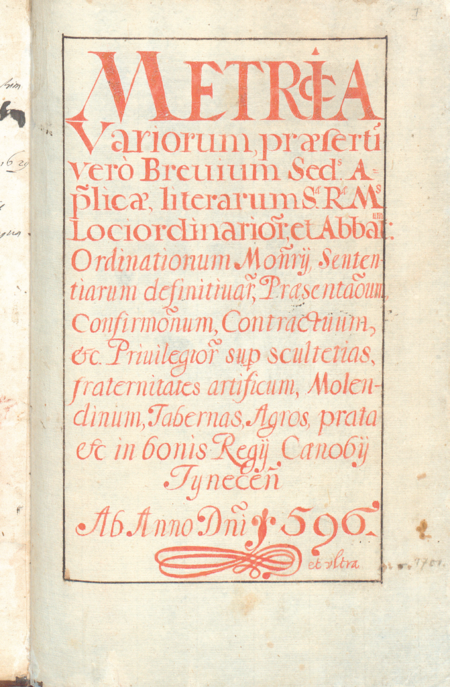 METRICA
Variorum, præserti͂
verò Breuium Sed.ˢ A=
p̃licæ, literarum S.ᵉ R.ᵉ M.ˢ
Lociordinarior̃, et Abbat:ᵘᵐ
Ordinationum Moñrij, Senten-
tiarum definitiuar̃, Præsentãoum
Confirmõnum, Contractuum,
&c. Priuilegior̃ sup scultetias,
fraternitates artificum, Molen-
dinum, Tabernas, Agros, prata
&c in bonis Regij Cænobij
Tyneceñ
Ab Anno Dñi 1596.
et vltra